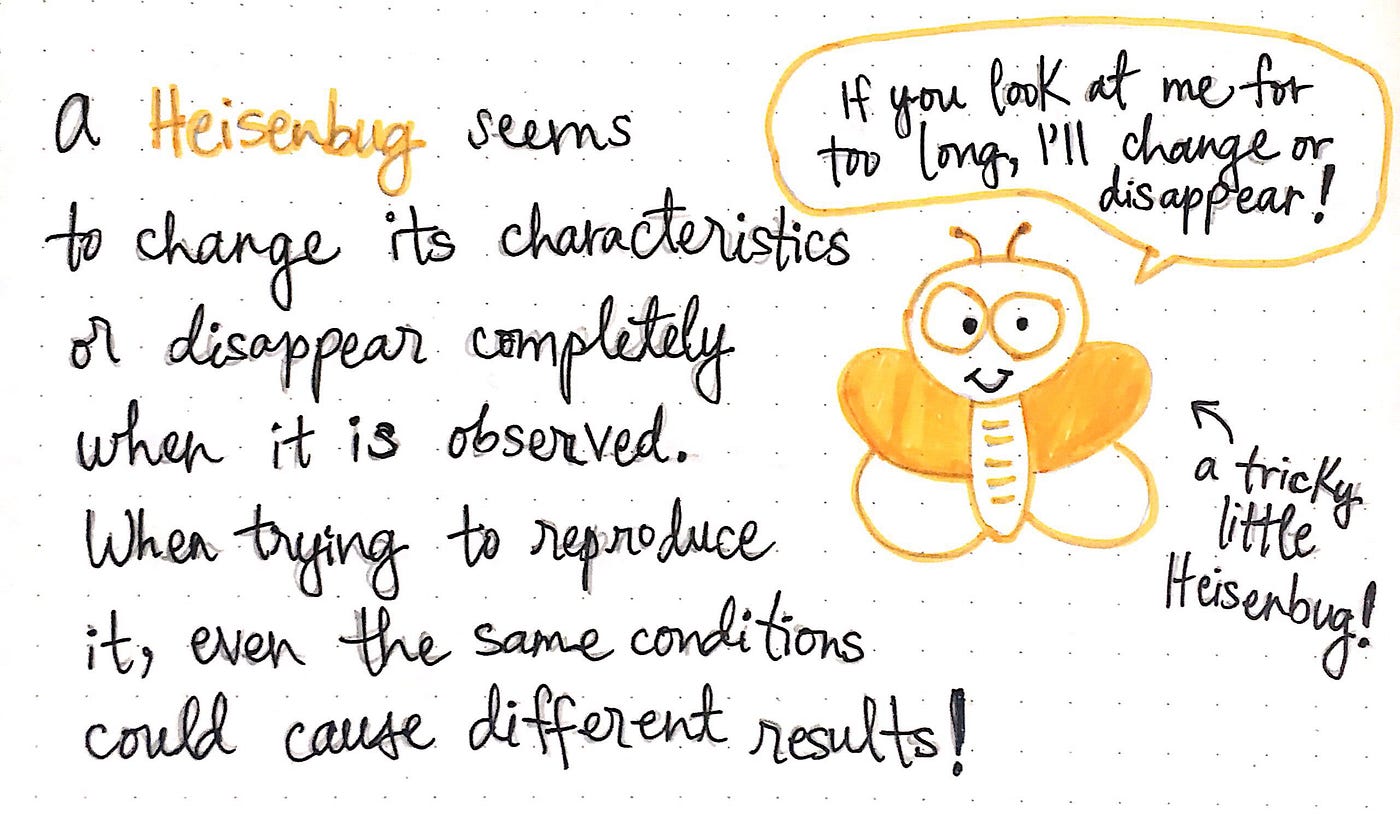 A Heisenbug seems
to change its characteristics
or disappear completely
when it is observed.
When trying to reproduce
it, even the same conditions
could cause different results!
If you look at me for
too long, I'll change or
disappear!
a tricky
little
Heisenbug!